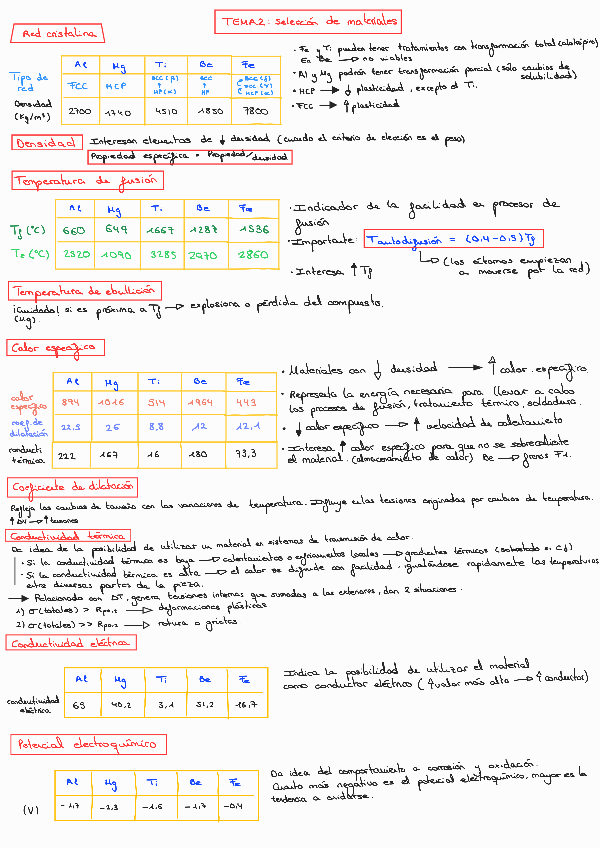 TEMA2: selección de materiales
Red cristalina
Al Mg Ti Be Fe
Tipo de red FCC HCP BCC (β) ↑ HP(α) BCC ↑ HP BCC (δ) FCC (γ) BCC (α)
Densidad (Kg/m³) 2700 1740 4510 1850 7800
· Fe y Ti pueden tener tratamientos con transformación total (alotrópico)
En Be → no viables
· Al y Mg podrán tener transformación parcial (sólo cambios de solubilidad)
· HCP → ↓ plasticidad, excepto el Ti.
· FCC → ↑ plasticidad
Densidad
Interesan elementos de ↓ densidad (cuando el criterio de elección es el peso)
Propiedad específica = Propiedad/densidad
Temperatura de fusión
Al Mg Ti Be Fe
Tf (°C) 660 649 1667 1287 1536
Te (°C) 2520 1090 3285 2470 2860
· Indicador de la facilidad en procesos de
fusión
· Importante: Tautodifusión = (0,4-0,5)Tf
↳ (los átomos empiezan
a moverse por la red)
· Interesa ↑ Tf
Temperatura de ebullición
¡Cuidado! si es próxima a Tf → explosiona o pérdida del compuesto.
(Mg).
Calor específico
Al Mg Ti Be Fe
calor específico 894 1016 514 1964 443
coef. de dilatación 22.5 26 8,8 12 12,1
conducti térmica 222 167 16 180 73,3
· Materiales con ↓ densidad → ↑ calor específico
· Representa la energía necesaria para llevar a cabo
los procesos de fusión, tratamiento térmico, soldadura.
· ↓ calor específico → ↑ velocidad de calentamiento
· Interesa ↑ calor específico para que no se sobrecaliente
el material. (almacenamiento de calor) Be → frenos F1.
Coeficiente de dilatación
Refleja los cambios de tamaño con las variaciones de temperatura. Influye en las tensiones originadas por cambios de temperatura.
↑ΔV → ↑tensiones
Conductividad térmica
Da idea de la posibilidad de utilizar un material en sistemas de transmisión de calor.
· Si la conductividad térmica es baja → calentamientos o enfriamientos locales → gradientes térmicos
· Si la conductividad térmica es alta → el calor se difunde con facilidad, igualándose rápidamente las temperaturas
entre diversas partes de la pieza.
→ Relacionado con ΔT, genera tensiones internas que sumadas a las exteriores, dan 2 situaciones.
1) σ(totales) > Rp0,2 → deformaciones plásticas
2) σ(totales) >> Rp0,2 → rotura o grietas
Conductividad eléctrica
Al Mg Ti Be Fe
conductividad eléctrica 65 40,2 3,1 51,2 16,7
Indica la posibilidad de utilizar el material
como conductor eléctrico (↑valor más alto → ↑ conductor)
Potencial electroquímico
Al Mg Ti Be Fe
(V) -1,7 -2,3 -1,6 -1,7 -0,4
Da idea del comportamiento a corrosión y oxidación.
Cuanto más negativo es el potencial electroquímico, mayor es la
tendencia a oxidarse.